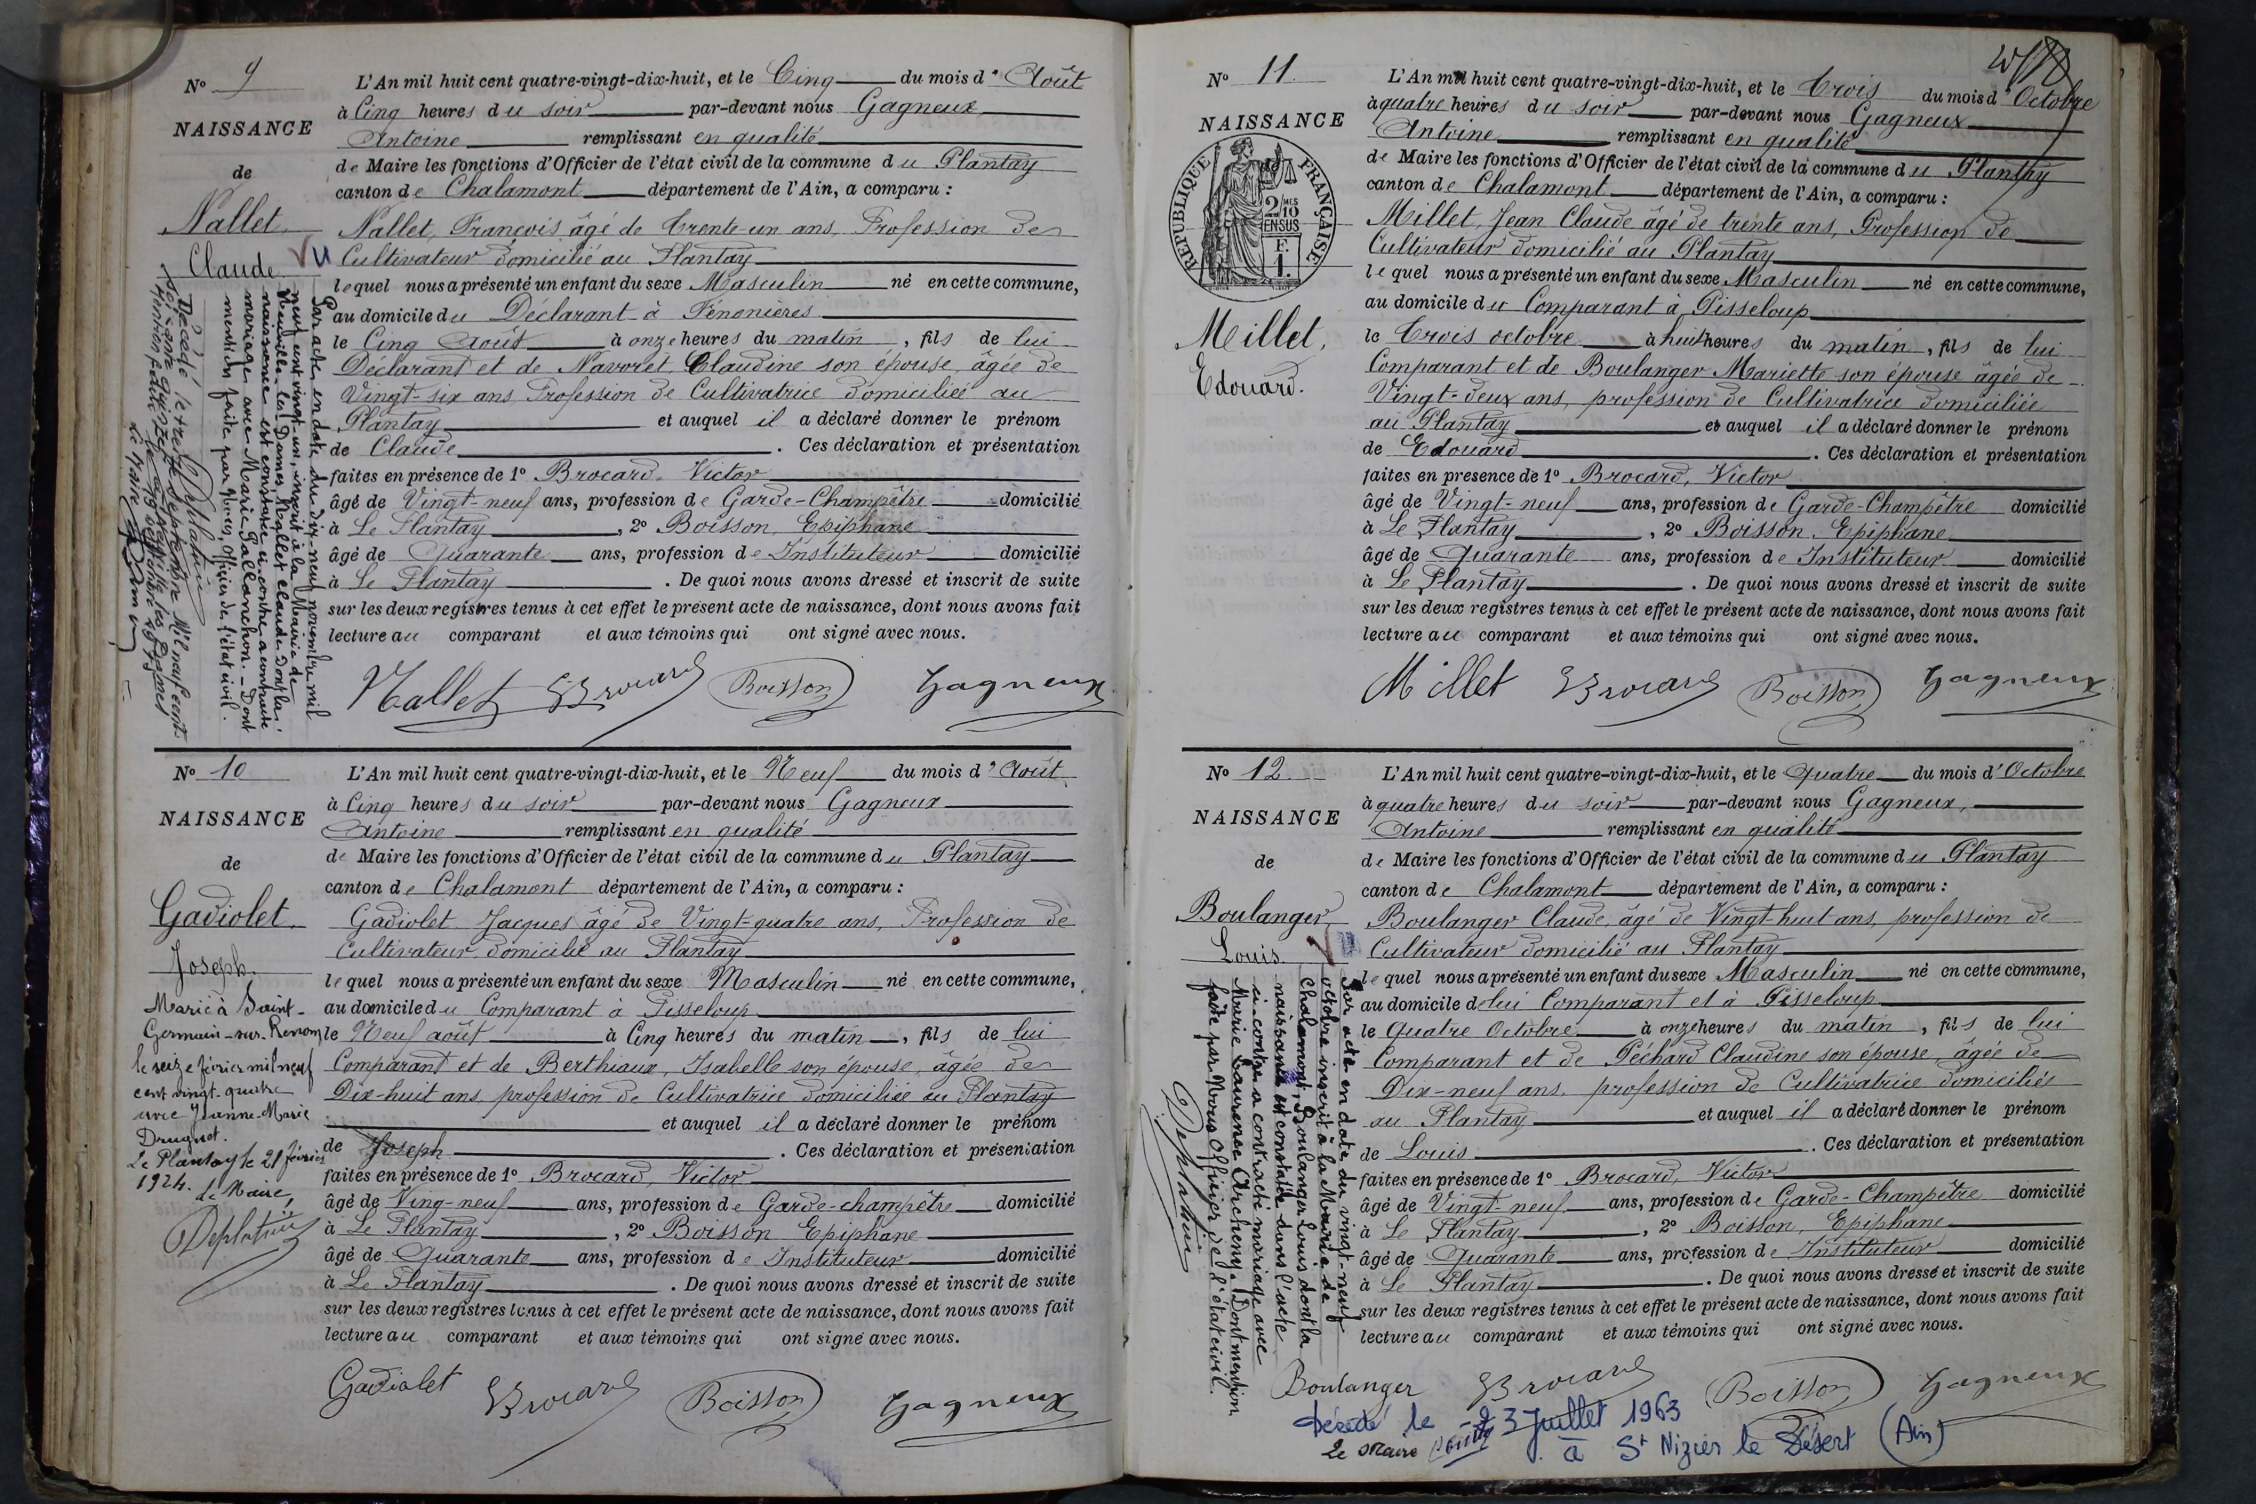 No 9
NAISSANCE
de
Nallet
Claude
VU
L'An mil huit cent quatre-vingt-dix-huit, et le Cinq du mois d' Août
à Cinq heures du soir par-devant nous Gagneux
Antoine remplissant en qualité
de Maire les fonctions d'Officier de l'état civil de la commune du Plantay
canton de Chalamont département de l'Ain, a comparu :
Nallet, François âgé de trente un ans, Profession de
Cultivateur domicilié au Plantay
lequel nous a présenté un enfant du sexe Masculin né en cette commune,
au domicile du Déclarant à Fénonières
le Cinq Août à onze heures du matin, fils de lui
Déclarant et de Navoret Claudine son épouse, âgée de
Vingt-six ans Profession de Cultivatrice domiciliée au
Plantay et auquel il a déclaré donner le prénom
de Claude. Ces déclaration et présentation
faites en présence de 1o Brocard Victor
âgé de Vingt-neuf ans, profession de Garde-Champêtre domicilié
à Le Plantay, 2o Boisson, Epiphane
âgé de Quarante ans, profession de Instituteur domicilié
à Le Plantay. De quoi nous avons dressé et inscrit de suite
sur les deux registres tenus à cet effet le présent acte de naissance, dont nous avons fait
lecture au comparant et aux témoins qui ont signé avec nous.
Nallet Brocard Boisson Gagneux
Par acte en date du dix-neuf novembre mil
neuf cent vingt-un, inscrit à la Mairie de
Neuville-les-Dames, Nallet Claude dont la
naissance est constatée ci-contre a contracté
mariage avec Marie Pallanchon. - Dont
mention faite par Nous, Officier de l'état civil.
Deplatière
Décédé le trente Septembre Mil neuf cent
à Neuville les Dames
Le Maire
No 10
NAISSANCE
de
Gadiolet
Joseph.
Marié à Saint-
Germain-sur-Renom
le seize février mil neuf
cent vingt-quatre
avec Jeanne-Marie
Druguet.
Le Plantay le 21 février
1924.
Le Maire,
Deplatière
L'An mil huit cent quatre-vingt-dix-huit, et le Neuf du mois d' Août
à Cinq heures du soir par-devant nous Gagneux
Antoine remplissant en qualité
de Maire les fonctions d'Officier de l'état civil de la commune du Plantay
canton de Chalamont département de l'Ain, a comparu :
Gadiolet Jacques âgé de Vingt-quatre ans, Profession de
Cultivateur domicilié au Plantay
lequel nous a présenté un enfant du sexe Masculin né en cette commune,
au domicile du Comparant à Pisseloup
le Neuf août à Cinq heures du matin, fils de lui
Comparant et de Berthiaux, Isabelle son épouse, âgée de
Dix-huit ans, profession de Cultivatrice domiciliée au Plantay
et auquel il a déclaré donner le prénom
de Joseph. Ces déclaration et présentation
faites en présence de 1o Brocard, Victor
âgé de Ving-neuf ans, profession de Garde-champêtre domicilié
à Le Plantay, 2o Boisson Epiphane
âgé de Quarante ans, profession de Instituteur domicilié
à Le Plantay. De quoi nous avons dressé et inscrit de suite
sur les deux registres tenus à cet effet le présent acte de naissance, dont nous avons fait
lecture au comparant et aux témoins qui ont signé avec nous.
Gadiolet Brocard Boisson Gagneux
No 11
NAISSANCE
RÉPUBLIQUE FRANÇAISE
2/10 MES
EN SUS
F.
1.
Millet,
Edouard.
L'An mil huit cent quatre-vingt-dix-huit, et le Trois du mois d' Octobre
à quatre heures du soir par-devant nous Gagneux
Antoine remplissant en qualité
de Maire les fonctions d'Officier de l'état civil de la commune du Plantay
canton de Chalamont département de l'Ain, a comparu :
Millet, Jean Claude âgé de trente ans, Profession de
Cultivateur domicilié au Plantay
lequel nous a présenté un enfant du sexe Masculin né en cette commune,
au domicile du Comparant à Pisseloup
le Trois octobre à huit heures du matin, fils de lui
Comparant et de Boulanger Mariette son épouse âgée de
Vingt-deux ans, profession de Cultivatrice domiciliée
au Plantay et auquel il a déclaré donner le prénom
de Edouard. Ces déclaration et présentation
faites en présence de 1o Brocard, Victor
âgé de Vingt-neuf ans, profession de Garde-Champêtre domicilié
à Le Plantay, 2o Boisson, Epiphane
âgé de Quarante ans, profession de Instituteur domicilié
à Le Plantay. De quoi nous avons dressé et inscrit de suite
sur les deux registres tenus à cet effet le présent acte de naissance, dont nous avons fait
lecture au comparant et aux témoins qui ont signé avec nous.
Millet Brocard Boisson Gagneux
No 12
NAISSANCE
de
Boulanger
Louis
L'An mil huit cent quatre-vingt-dix-huit, et le Quatre du mois d' Octobre
à quatre heures du soir par-devant nous Gagneux,
Antoine remplissant en qualité
de Maire les fonctions d'Officier de l'état civil de la commune du Plantay
canton de Chalamont département de l'Ain, a comparu :
Boulanger Claude, âgé de Vingt-huit ans, profession de
Cultivateur domicilié au Plantay
lequel nous a présenté un enfant du sexe Masculin né en cette commune,
au domicile de lui Comparant et à Pisseloup
le Quatre Octobre à onze heures du matin, fils de lui
Comparant et de Péchard Claudine son épouse, âgée de
Dix-neuf ans, profession de Cultivatrice domiciliée
au Plantay et auquel il a déclaré donner le prénom
de Louis. Ces déclaration et présentation
faites en présence de 1o Brocard, Victor
âgé de Vingt-neuf ans, profession de Garde-Champêtre domicilié
à Le Plantay, 2o Boisson, Epiphane
âgé de Quarante ans, profession de Instituteur domicilié
à Le Plantay. De quoi nous avons dressé et inscrit de suite
sur les deux registres tenus à cet effet le présent acte de naissance, dont nous avons fait
lecture au comparant et aux témoins qui ont signé avec nous.
Boulanger Brocard Boisson Gagneux
Par acte en date du vingt-neuf
octobre inscrit à la Mairie de
Chalamont, Boulanger Louis dont la
naissance est constatée dans l'acte
ci-contre a contracté mariage avec
Marie Laurence Archeny. Dont mention
faite par Nous Officier de l'état civil.
Deplatière
Décédé le 23 Juillet 1963
à St Nizier le Désert (Ain)
Le Maire